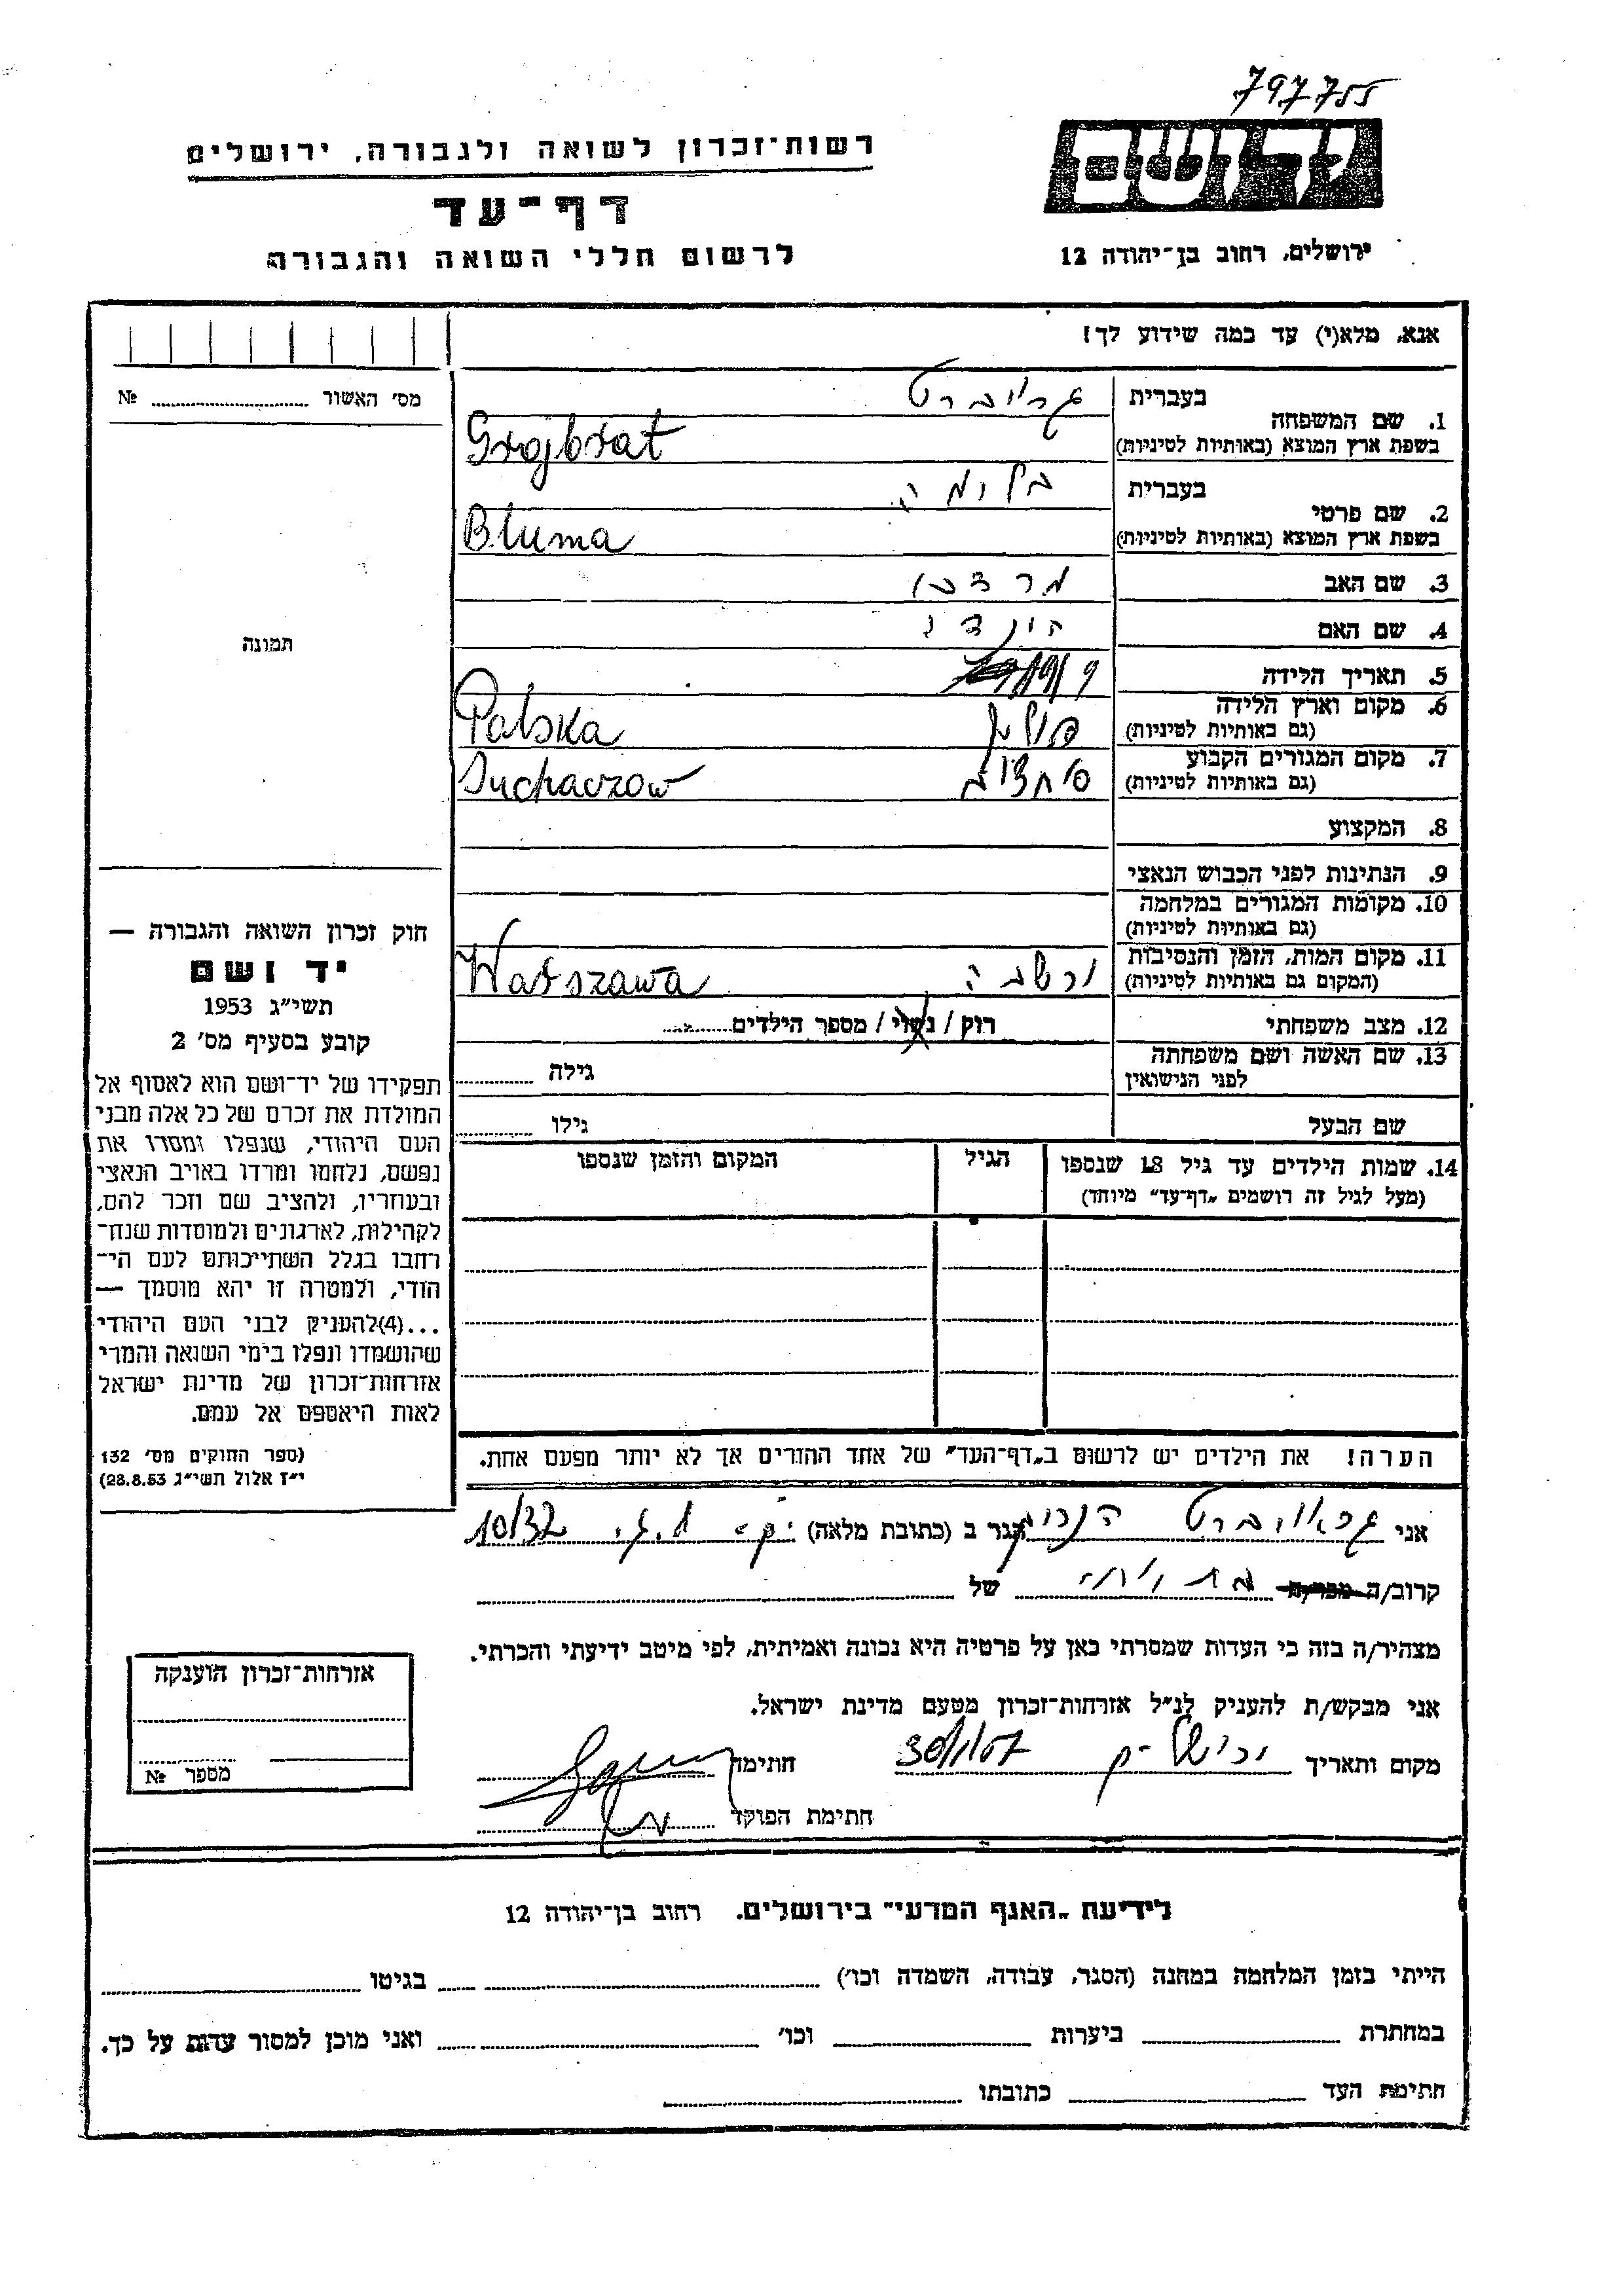 797755
יד ושם
רשות-זכרון לשואה ולגבורה, ירושלים
דף-עד
לרשום חללי השואה והגבורה
ירושלים, רחוב בן-יהודה 12
אנא, מלא(י) עד כמה שידוע לך!
מס' האשור ........ №
תמונה
חוק זכרון השואה והגבורה —
יד ושם
תשי"ג 1953
קובע בסעיף מס' 2
תפקידו של יד-ושם הוא לאסוף אל
המולדת את זכרם של כל אלה מבני
העם היהודי, שנפלו ומסרו את
נפשם, נלחמו ומרדו באויב הנאצי
ובעוזריו, ולהציב שם וזכר להם,
לקהילות, לארגונים ולמוסדות שנח-
רחבו בגלל השתייכותם לעם הי-
הודי, ולמטרה זו יהא מוסמך —
...(4)להעניק לבני העם היהודי
שהושמדו ונפלו בימי השואה והמרי
אזרחות-זכרון של מדינת ישראל
לאות היאספם אל עמם.
(ספר החוקים מס' 132
י"ז אלול תשי"ג 28.8.53)
1. שם המשפחה
בעברית גרויברט
בשפת ארץ המוצא (באותיות לטיניות) Grojbrat
2. שם פרטי
בעברית בלומה
בשפת ארץ המוצא (באותיות לטיניות) Bluma
3. שם האב מרדכי
4. שם האם
5. תאריך הלידה 1919
6. מקום וארץ הלידה פולין
(גם באותיות לטיניות) Polska
7. מקום המגורים הקבוע
(גם באותיות לטיניות) Suchaczow
8. המקצוע
9. הנתינות לפני הכבוש הנאצי
10. מקומות המגורים במלחמה
(גם באותיות לטיניות)
11. מקום המות, הזמן והנסיבות ורשבה
(המקום גם באותיות לטיניות) Warszawa
12. מצב משפחתי רוק / נשוי / מספר הילדים........
13. שם האשה ושם משפחתה גילה ........
לפני הנישואין
שם הבעל גילו ........
14. שמות הילדים עד גיל 18 שנספו הגיל המקום והזמן שנספו
(מעל לגיל זה רושמים "דף-עד" מיוחד)
הערה! את הילדים יש לרשום ב"דף-העד" של אחד ההורים אך לא יותר מפעם אחת.
אני גראויברט הנרי הגר ב (כתובת מלאה) 10/32
קרוב/ה מכר/ה של
מצהיר/ה בזה כי העדות שמסרתי כאן על פרטיה היא נכונה ואמיתית, לפי מיטב ידיעתי והכרתי.
אני מבקש/ת להעניק לנ"ל אזרחות-זכרון מטעם מדינת ישראל.
מקום ותאריך 30/1/57 חתימה
חתימת הפוקד
אזרחות-זכרון הוענקה
מספר №
לידיעת "האגף המדעי" בירושלים. רחוב בן-יהודה 12
הייתי בזמן המלחמה במחנה (הסגר, עבודה, השמדה וכו') ........ בגיטו ........
במחתרת ........ ביערות ........ וכו' ........ ואני מוכן למסור עדות על כך.
חתימת העד ........ כתובתו ........